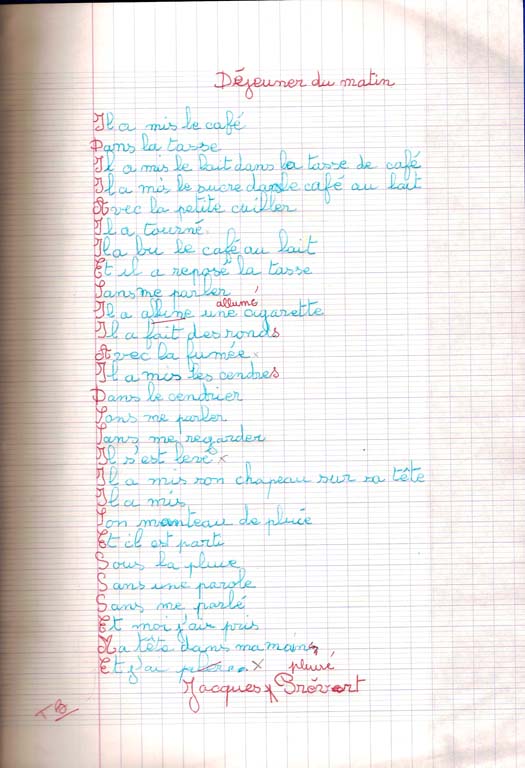 Déjeuner du matin
Il a mis le café
Dans la tasse
Il a mis le lait dans la tasse de café
Il a mis le sucre dans le café au lait
Avec la petite cuiller
Il a tourné.
Il a bu le café au lait
Et il a reposé la tasse
Sans me parler
allumé
Il a une cigarette
Il a fait des ronds
Avec la fumée.
Il a mis les cendres
Dans le cendrier
Sans me parler
Sans me regarder
Il s'est levé x
Il a mis son chapeau sur sa tête
Il a mis
Son manteau de pluie
Et il est parti
Sous la pluie
Sans une parole
Sans me parlé
Et moi j'ais pris
Ma tête dans ma main
Et j'ai x pleuré
Jacques Prévert
TB